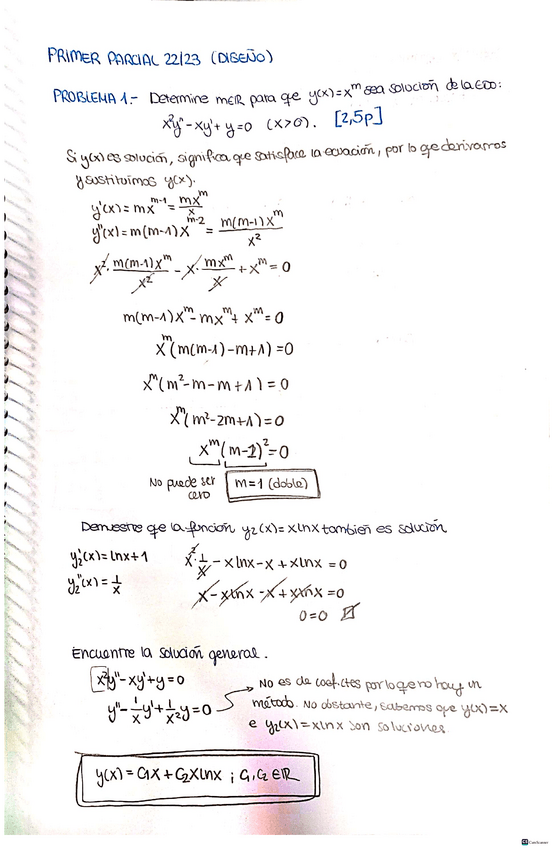 PRIMER PARCIAL 22/23 (DISEÑO)
PROBLEMA 1.- Determine m∈ℝ para que y(x)=x^m sea solución de la EDO:
x²y''-xy'+y=0 (x>0). [2,5p]
Si y(x) es solución, significa que satisface la ecuación, por lo qe derivamos
y sustituimos y(x).
y'(x)=mx^(m-1)=mx^m/x
y''(x)=m(m-1)x^(m-2)=m(m-1)x^m/x²
x²·m(m-1)x^m/x² - x·mx^m/x + x^m=0
m(m-1)x^m-mx^m+x^m=0
x^m(m(m-1)-m+1)=0
x^m(m²-m-m+1)=0
x^m(m²-2m+1)=0
x^m(m-1)²=0
No puede ser cero
m=1 (doble)
Demuestre qe la función y₂(x)=xlnx también es solución
y₂'(x)=lnx+1
y₂''(x)=1/x
x²·1/x - xlnx-x+xlnx=0
x-xlnx-x+xlnx=0
0=0
Encuentre la solución general.
x²y''-xy'+y=0
y''-1/x y'+1/x² y=0
No es de coefictes por lo qe no hay un
método. No obstante, sabemos que y(x)=x
e y₂(x)=xlnx son soluciones.
y(x)=C₁x+C₂xlnx ; C₁,C₂∈ℝ
CS CamScanner